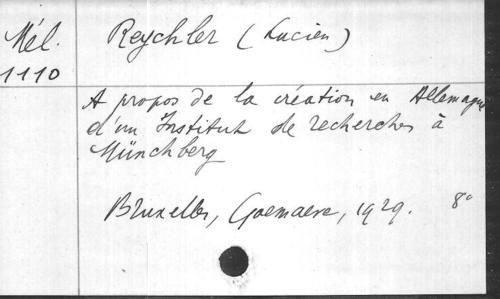 Mél. 1110
Reychler (Lucien)
A propos de la création en Allemagne
d'un Institut de recherches à
Münchberg
Bruxelles, Goemaere, 1929. 8°